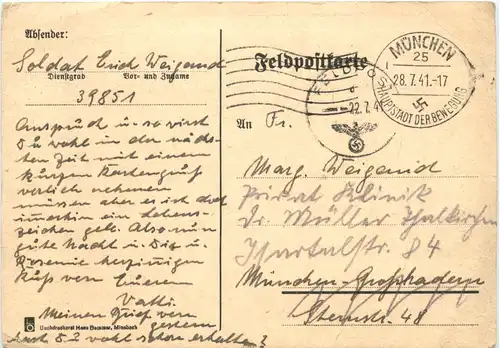 Absender:
Soldat Erich Weigand
Dienstgrad Vor- und Zuname
39851
Feldpostkarte
MÜNCHEN
25
28.7.41.-17
HAUPTSTADT DER BEWEGUNG
FELDPOST
d
22.7.41
An Fr.
Marg. Weigand
Privat Klinik
Dr. Müller Thalkirchen
Isartalstr. 84
München-Großhadern
Sternstr. 48
Anspruch u. so wirst
Du wohl in der näch-
sten Zeit mit einem
kurzen Kartengruß
vorlieb nehmen
müssen aber es ist doch
immerhin ein Lebens-
zeichen gelt. Also nun
gute Nacht u. Dir u.
Rosemie herzinnigen
Kuß von Euerem
Vatti.
Meinen Brief von
gestern
hast Du wohl schon erhalten?
Buchdruckerei Hans Miesbach